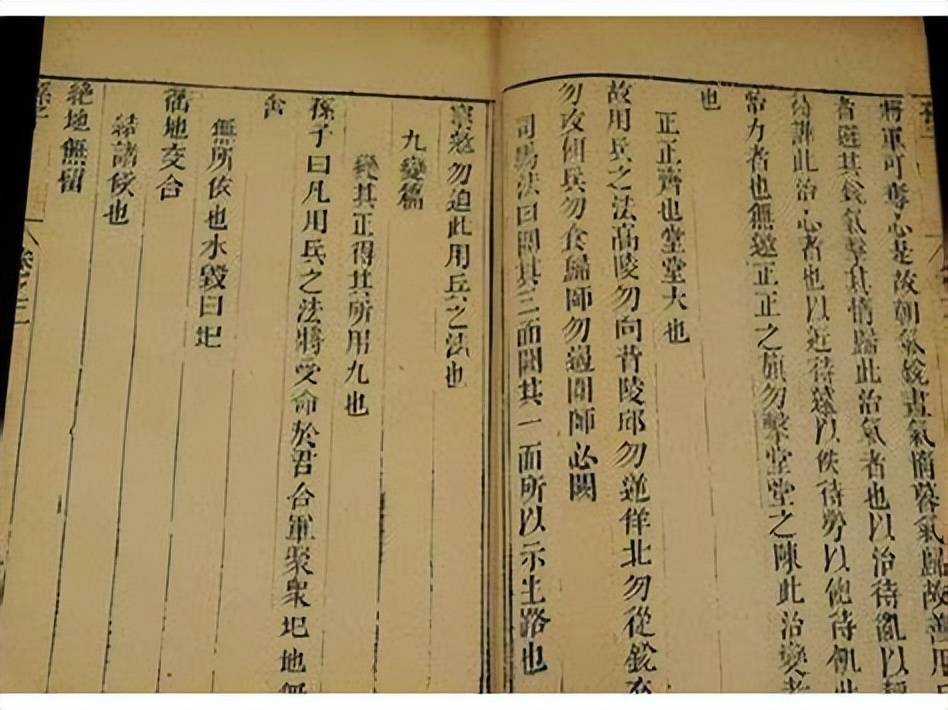 將軍可奪心是故朝氣銳晝氣惰暮氣歸故善用兵
者避其銳氣擊其惰歸此治氣者也以治待亂以靜
待譁此治心者也以近待遠以佚待勞以飽待飢此
治力者也無邀正正之旗勿擊堂堂之陳此治變者
也
正正齊也堂堂大也
故用兵之法高陵勿向背陵邱勿逆佯北勿從銳卒
勿攻餌兵勿食歸師勿遏圍師必闕
司馬法曰圍其三面闕其一面所以示生路也
窮寇勿迫此用兵之法也
九變篇
變其正得其所用九也
孫子曰凡用兵之法將受命於君合軍聚衆圮地無
舍
無所依也水毀曰圮
衢地交合
結諸侯也
絕地無留
孫子
卷之二